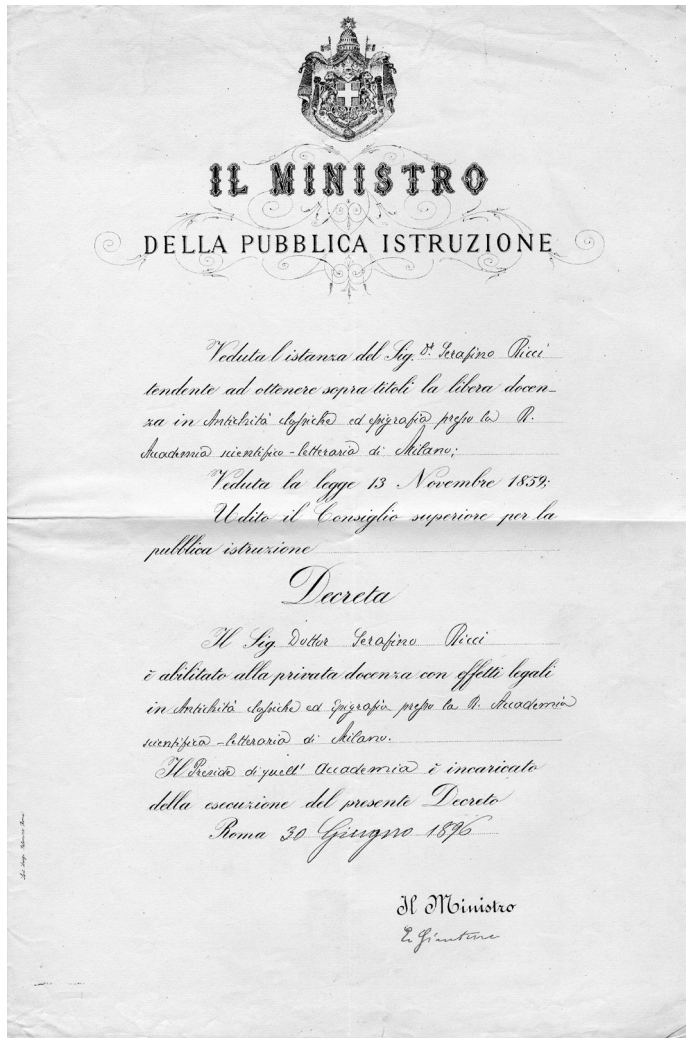 IL MINISTRO
DELLA PUBBLICA ISTRUZIONE
Veduta l'istanza del Sig. Dr. Serafino Ricci
tendente ad ottenere sopra titoli la libera docen-
za in Antichità classiche ed epigrafia presso la R.
Accademia scientifico-letteraria di Milano;
Veduta la legge 13 Novembre 1859;
Udito il Consiglio superiore per la
pubblica istruzione
Decreta
Il Sig. Dottor Serafino Ricci
è abilitato alla privata docenza con effetti legali
in Antichità classiche ed Epigrafia presso la R. Accademia
scientifica-letteraria di Milano.
Il Preside di quell' Accademia è incaricato
della esecuzione del presente Decreto
Roma 30 Giugno 1896
Il Ministro